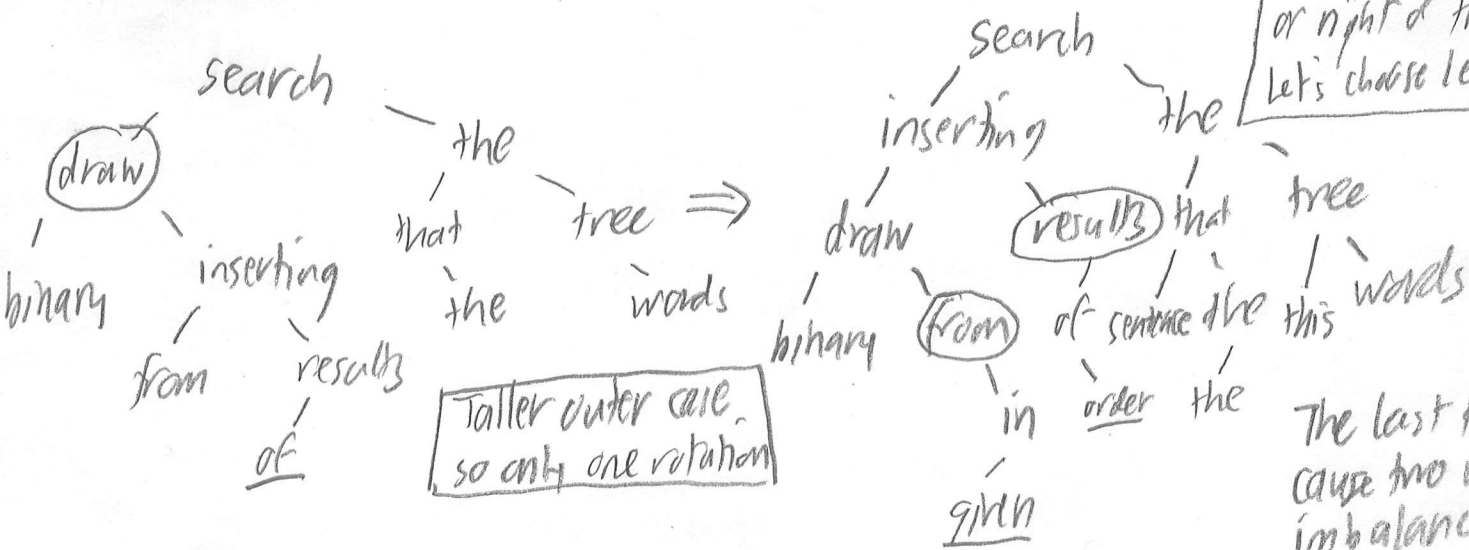 search
draw
the
that
tree
binary
inserting
the
words
from
results
of
Taller outer case
so only one rotation
⇒
search
inserting
the
draw
results
that
tree
binary
from
of
sentence
the
this
words
in
order
the
given
or right of
Let's choose
The last
cause two
imbalanc